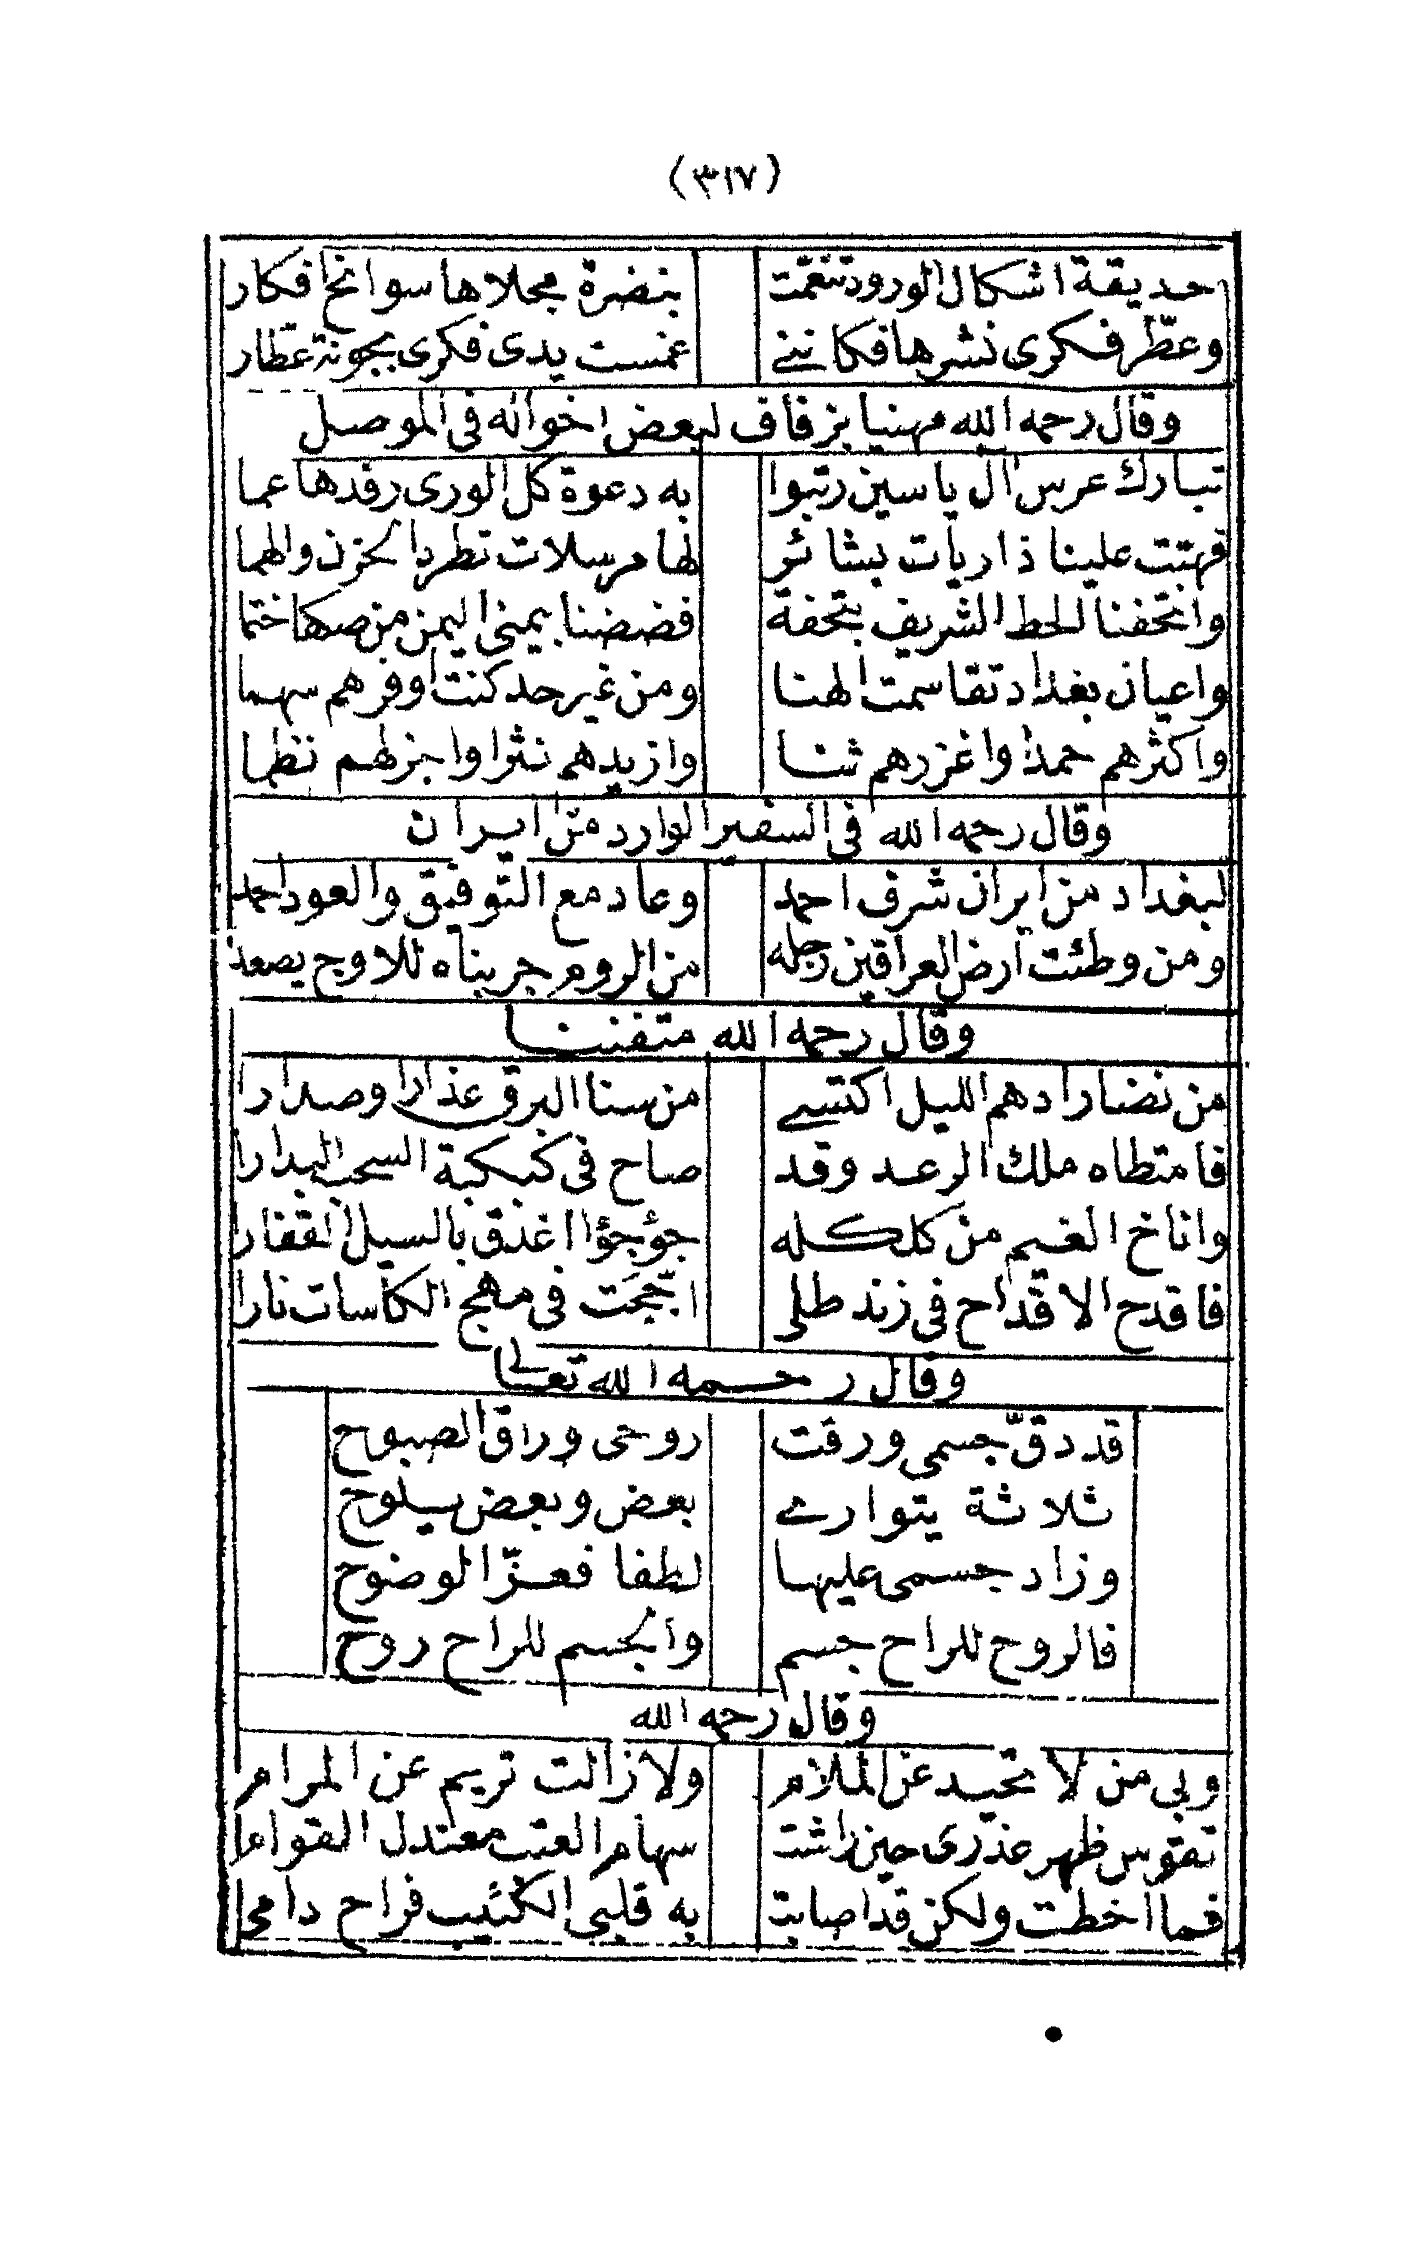 (٣١٧)
حديقة اشكال الورود تنعمت بنضرة مجلاها سوانح افكار
وعطّر فكرى نشرها فكاننى غمست يدى فكرى بجونة عطار
وقال رحمه الله مهنيا بزفاف لبعض اخوانه فى الموصل
تبارك عرس آل ياسين رتبوا به دعوة كل الورى رفدها عما
فهبت علينا ذاريات بشائر لها مرسلات تطرد الحزن والهما
واتحفنا لحظ الشريف بتحفة فضضنا بيمنى اليمن من صكها ختما
واعيان بغداد تقاسمت الهنا ومن غير حد كنت اوفرهم سهما
واكثرهم حمدا واغزرهم ثنا وازيدهم نثرا واجزلهم نظما
وقال رحمه الله فى السفير الوارد من ايران
لبغداد من ايران شرف احمد وعاد مع التوفيق والعود احمد
ومن وطئت ارض العراقين رجله من الروم جربناه للاوج يصعد
وقال رحمه الله متفننا
من نضار ادهم الليل اكتسى من سنا البرق عذارا وصدارا
فامتطاه ملك الرعد وقد صاح فى كبكبة السحب البدارا
واناخ الغيم من كلكله جؤجؤا اغذق بالسيل القفارا
فاقدح الاقداح فى زند طلى اججت فى مهج الكاسات نارا
وقال رحمه الله تعالى
قد دقّ جسمى ورقت روحى وراق الصبوح
ثلاثة يتوارى بعض وبعض يلوح
وزاد جسمى عليها لطفا فعزّ الوضوح
فالروح للراح جسم والجسم للراح روح
وقال رحمه الله
وبى من لا تحيد عن الملام ولا زالت تريم عن المرام
تقوس ظهر عذرى حين راشت سهام العتب معتدل القوام
فما اخطت ولكن قد اصابت به قلبى الكئيب فراح دامى